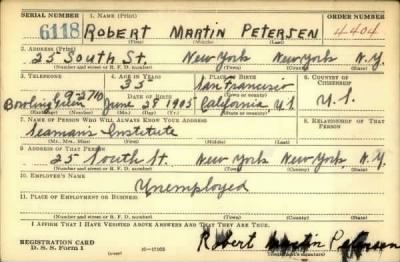 SERIAL NUMBER 1. NAME (Print) ORDER NUMBER
6118 ROBERT MARTIN PETERSEN 4404
(First) (Middle) (Last)
2. ADDRESS (Print)
25 South St. New York New York N.Y.
(Number and street or R. F. D. number) (Town) (County) (State)
3. TELEPHONE 4. AGE IN YEARS 5. PLACE OF BIRTH 6. COUNTRY OF CITIZENSHIP
35 San Francisco
9-2710 DATE OF BIRTH (Town or county)
Bowling Green June 28 1905 California U.S. U.S.
(Exchange) (Number) (Mo.) (Day) (Yr.) (State or country)
7. NAME OF PERSON WHO WILL ALWAYS KNOW YOUR ADDRESS 8. RELATIONSHIP OF THAT PERSON
Seaman's Institute
(Mr., Mrs., Miss) (First) (Middle) (Last)
9. ADDRESS OF THAT PERSON
25 South St. New York New York N.Y.
(Number and street or R. F. D. number) (Town) (County) (State)
10. EMPLOYER'S NAME
Unemployed
11. PLACE OF EMPLOYMENT OR BUSINESS
(Number and street or R. F. D. number) (Town) (County) (State)
I AFFIRM THAT I HAVE VERIFIED ABOVE ANSWERS AND THAT THEY ARE TRUE.
REGISTRATION CARD
D. S. S. Form 1 Robert Martin Petersen